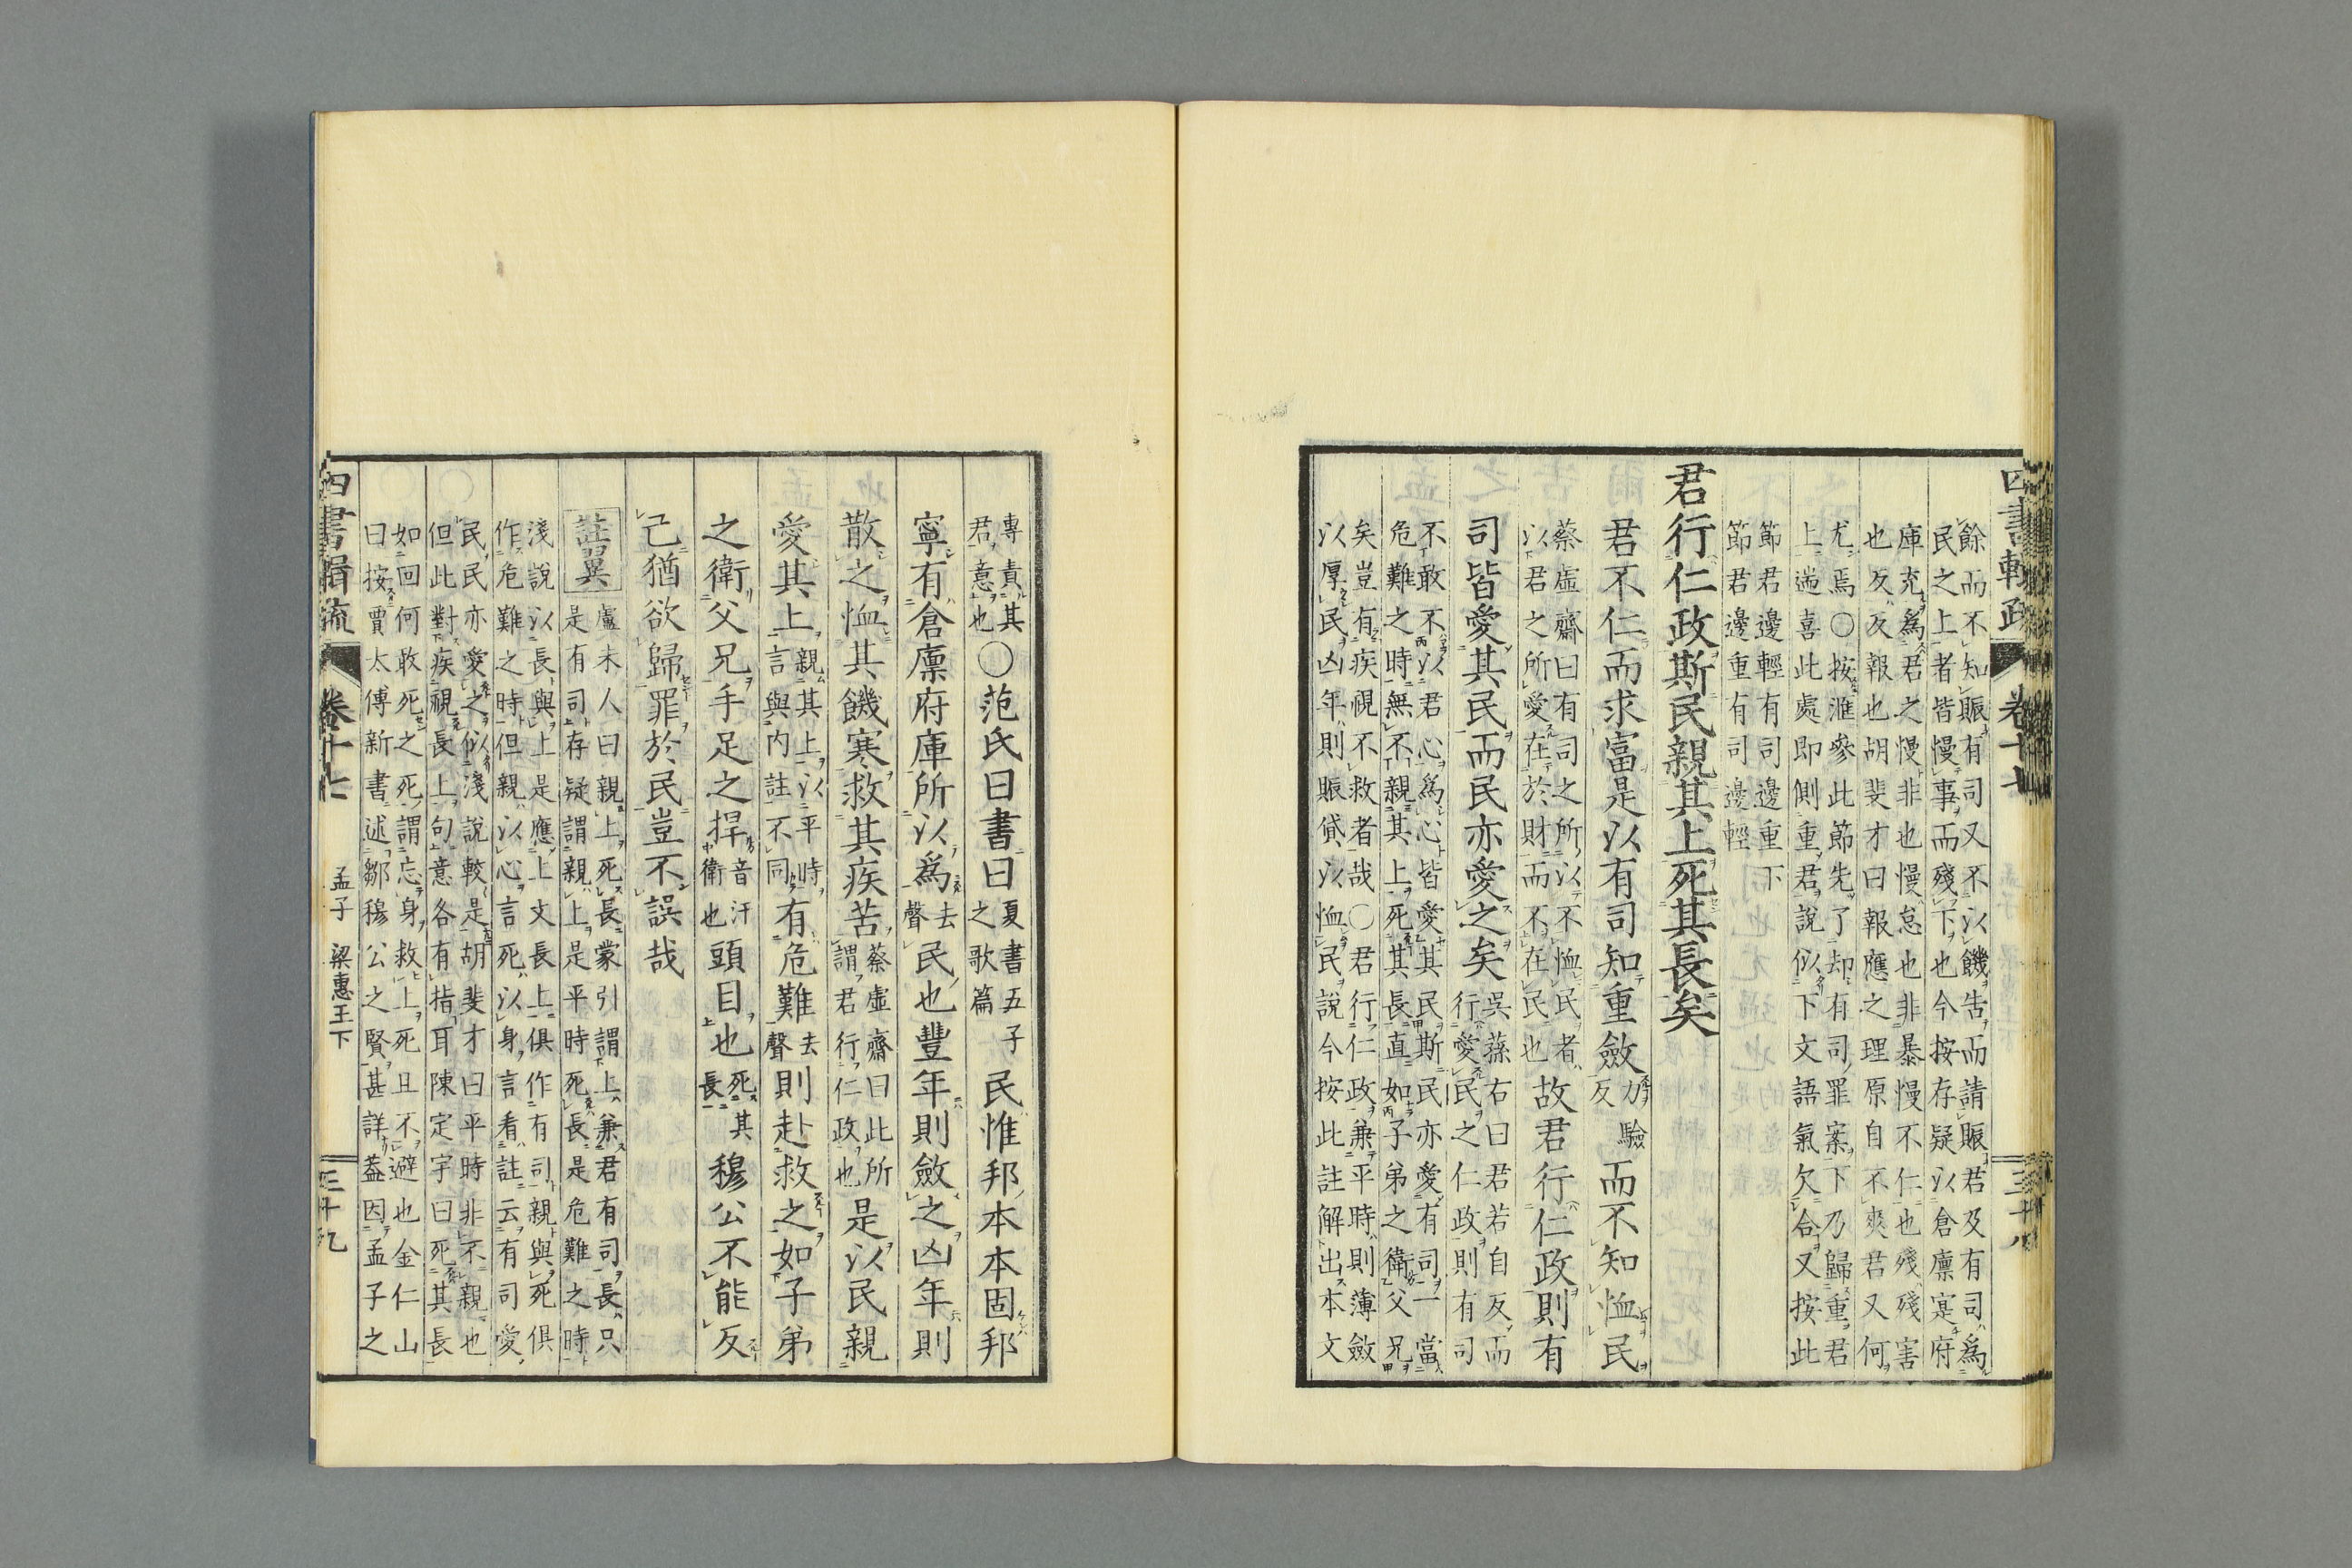 餘而不知賑有司又不以饑告而請賑君及有司爲
民之上者皆慢事而殘下也今按存疑以倉廩寔府
庫充爲君之慢非也慢怠也非暴慢不仁也殘殘害
也反反報也胡斐才曰報應之理原自不爽君又何
尤焉○按滙參此節先了却有司罪案下乃歸重君
上遄喜此處即側重君說似下文語氣欠合又按此
節君邊輕有司邊重下
節君邊重有司邊輕
君行仁政斯民親其上死其長矣
君不仁而求富是以有司知重斂力驗反而不知恤民
蔡虛齋曰有司之所以不恤民者
以君之所愛在於財而不在民也故君行仁政則有
司皆愛其民而民亦愛之矣吳蓀右曰君若自反而
行愛民之仁政則有司
不敢不以君心爲心皆愛其民斯民亦愛有司一當
危難之時無不親其上死其長直如子弟之衛父兄
矣豈有疾視不救者哉○君行仁政兼平時則薄斂
以厚民凶年則賑貸以恤民說今按此註解出本文
專責其
君意也○范氏曰書曰夏書五子之歌篇民惟邦本本固邦
寧有倉廩府庫所以爲去聲民也豐年則斂之凶年則
散之恤其饑寒救其疾苦蔡虛齋曰此所謂君行仁政也是以民親
愛其上親其上以平時言與内註不同有危難去聲則赴救之如子弟
之衛父兄手足之捍音汗衛也頭目也死其長穆公不能反
己猶欲歸罪於民豈不誤哉
註異盧未人曰親上死長蒙引謂上兼君有司長只
是有司存疑謂親上是平時死長是危難之時
淺說以長與上是應上文長上俱作有司親與死俱
作危難之時但親以心言死以身言看註云有司愛
民民亦愛之似淺說較是胡斐才曰平時非不親也
但此對疾視長上句意各有指耳陳定宇曰死其長
如回何敢死之死謂忘身救上死且不避也金仁山
曰按賈太傅新書述鄒穆公之賢甚詳葢因孟子之
卷十七
孟子 梁惠王下
三十九